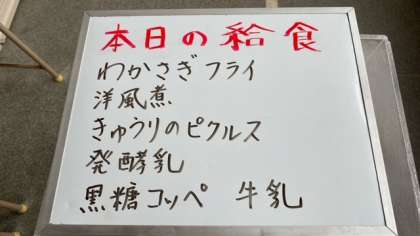 本日の給食
わかさぎフライ
洋風煮
きゅうりのピクルス
発酵乳
黒糖コッペ 牛乳